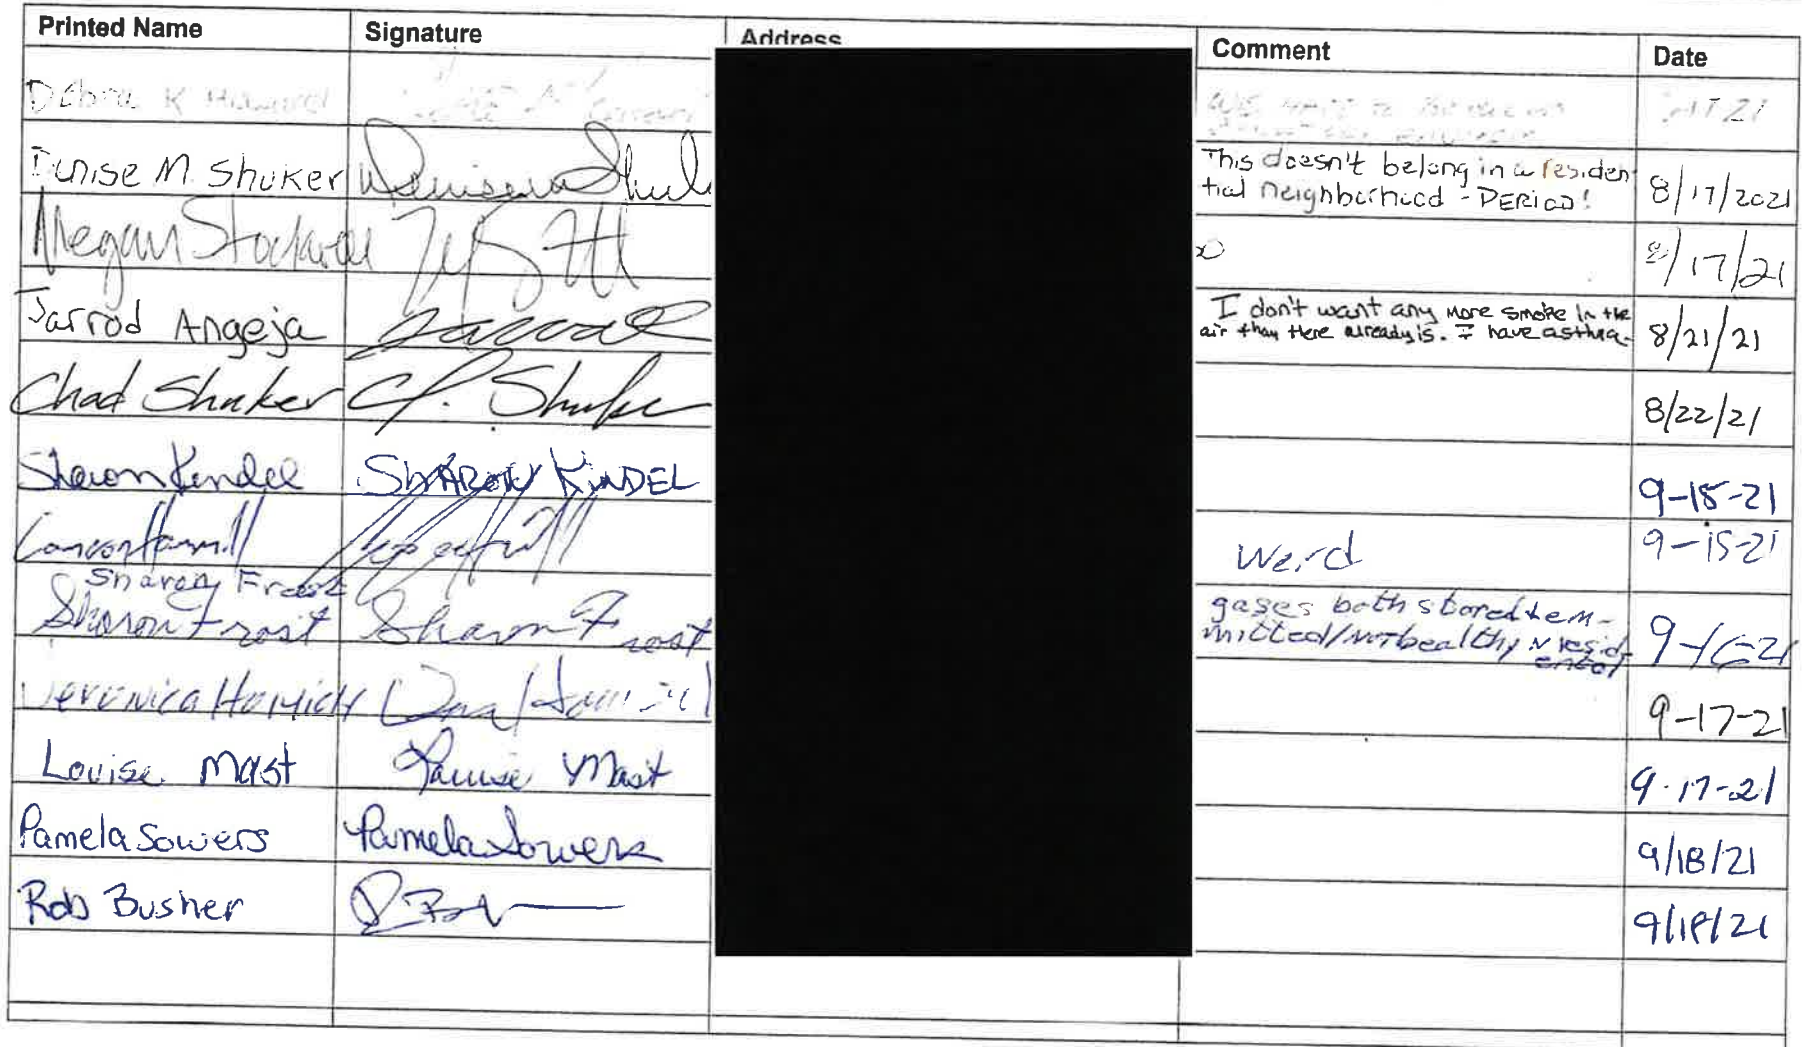 Printed Name Signature Address Comment Date
Debra K
Denise M. Shuker Denise M Shuk 8/17/2021
This doesn't belong in a residen
tial neighborhood - PERIOD!
Megan 8/17/21
Jarrod Angeja Jarrod 8/21/21
I don't want any more smoke in the
air than there already is. I have asthma.
Chad Shuker C. Shuker 8/22/21
Sharon Kindel SHARON KINDEL 9-15-21
Weird 9-15-21
Sharon Frost
Sharon Frost Sharon Frost 9-16-21
gases both stored & em-
mitted/not healthy resid-
ental
Veronica 9-17-21
Louise Mast Louise Mast 9-17-21
Pamela Sowers Pamela Sowers 9/18/21
Rob Busher 9/18/21